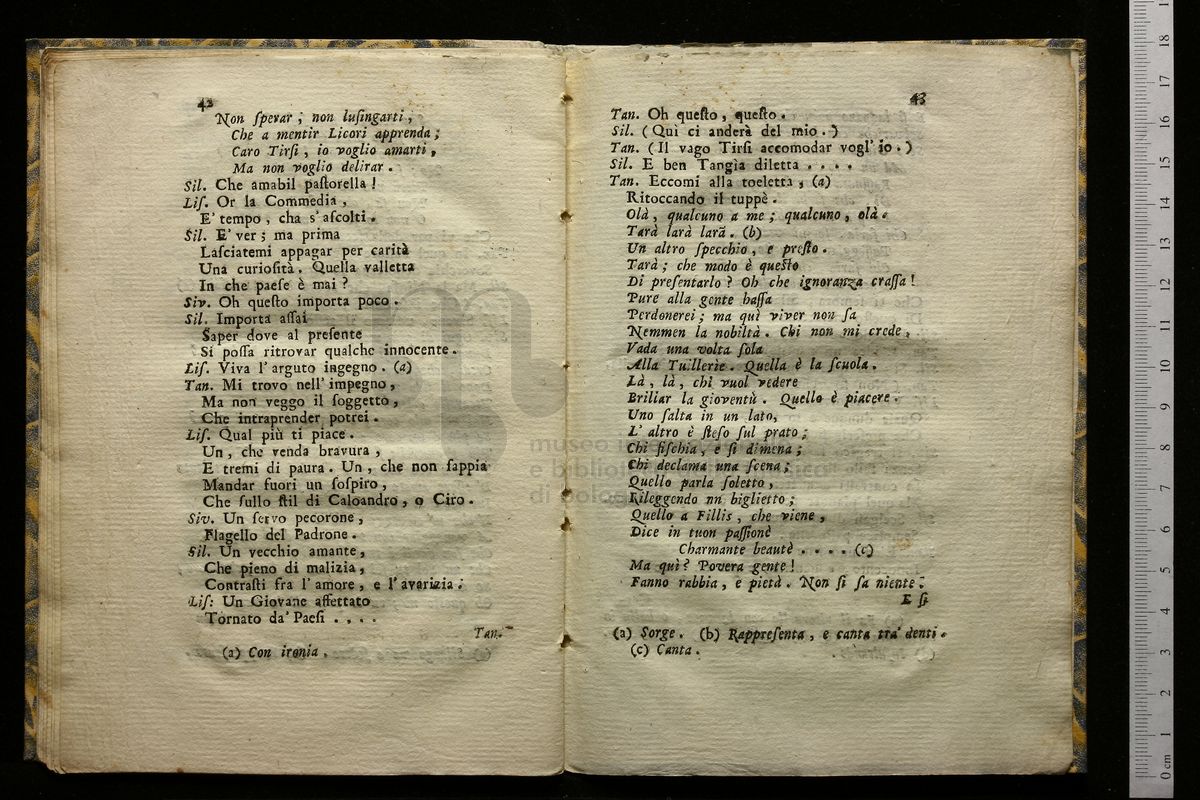 42
Non ſperar ; non luſingarti ,
Che a mentir Licori apprenda ;
Caro Tirſi , io voglio amarti ,
Ma non voglio delirar .
Sil. Che amabil paſtorella !
Liſ. Or la Commedia ,
E' tempo , cha s' aſcolti .
Sil. E' ver ; ma prima
Laſciatemi appagar per carità
Una curioſità . Quella valletta
In che paeſe è mai ?
Siv. Oh queſto importa poco .
Sil. Importa aſſai
Saper dove al preſente
Si poſſa ritrovar qualche innocente .
Liſ. Viva l' arguto ingegno . (a)
Tan. Mi trovo nell' impegno ,
Ma non veggo il ſoggetto ,
Che intraprender potrei .
Liſ. Qual più ti piace .
Un , che venda bravura ,
E tremi di paura . Un , che non ſappia
Mandar fuori un ſoſpiro ,
Che ſullo ſtil di Caloandro , o Ciro .
Siv. Un ſervo pecorone ,
Flagello del Padrone .
Sil. Un vecchio amante ,
Che pieno di malizia ,
Contraſti fra l' amore , e l' avarizia .
Liſ: Un Giovane affettato
Tornato da' Paeſi . . . .
Tan.
(a) Con ironia .
43
Tan. Oh queſto , queſto .
Sil. ( Quì ci anderà del mio . )
Tan. ( Il vago Tirſi accomodar vogl' io . )
Sil. E ben Tangìa diletta . . . .
Tan. Eccomi alla toeletta , (a)
Ritoccando il tuppè .
Olà , qualcuno a me ; qualcuno , olà .
Tarà larà larà . (b)
Un altro ſpecchio , e preſto .
Tarà ; che modo è queſto
Di preſentarlo ? Oh che ignoranza craſſa !
Pure alla gente baſſa
Perdonerei ; ma quì viver non ſa
Nemmen la nobiltà . Chi non mi crede ,
Vada una volta ſola
Alla Tuillerie . Quella è la ſcuola .
Là , là , chi vuol vedere
Briliar la gioventù . Quello è piacere .
Uno ſalta in un lato,
L' altro è ſteſo ſul prato ;
Chi fiſchia , e ſi dimena ;
Chi declama una ſcena ;
Quello parla ſoletto ,
Rileggendo nn biglietto ;
Quello a Fillis , che viene ,
Dice in tuon paſſionè
Charmante beautè . . . . (c)
Ma quì ? Povera gente !
Fanno rabbia , e pietà . Non ſi ſa niente .
E ſi
(a) Sorge . (b) Rappreſenta , e canta tra' denti .
(c) Canta .